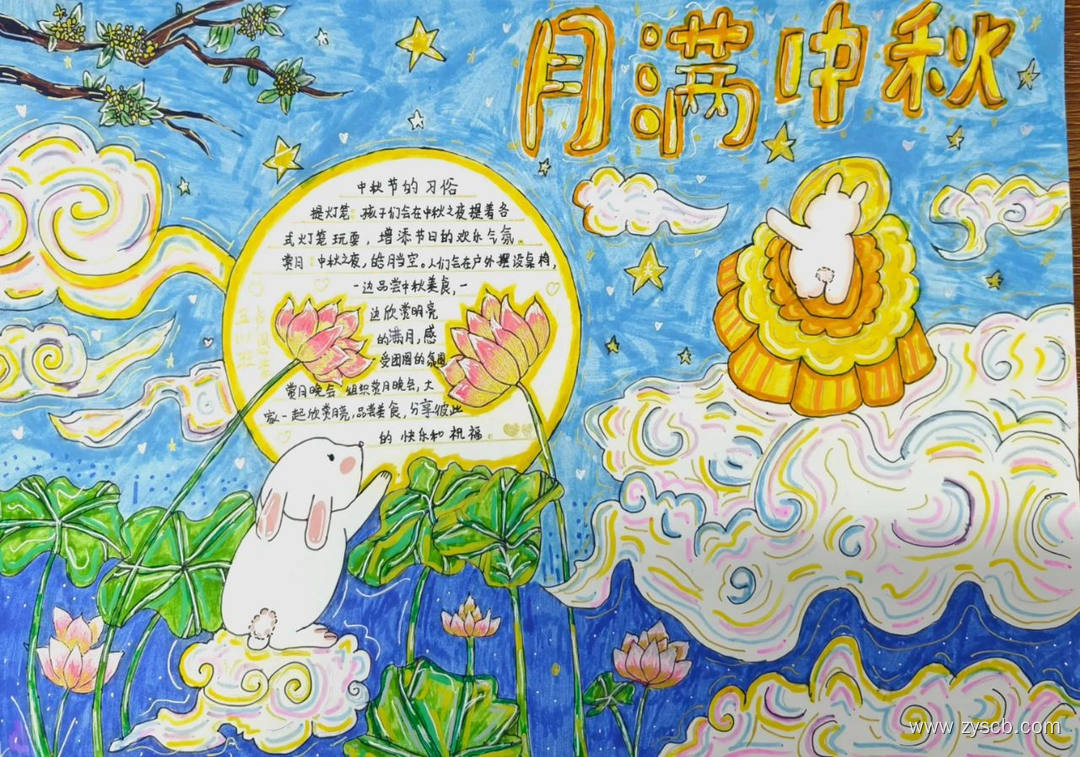 月满中秋
中秋节的习俗
提灯笼：孩子们会在中秋之夜提着各
式灯笼玩耍，增添节日的欢乐气氛。
赏月：中秋之夜，皓月当空。人们会在户外摆设桌椅，
一边品尝中秋美食，一
边欣赏明亮
的满月，感
受团圆的氛围
赏月晚会 组织赏月晚会，大
家一起欣赏明亮，品尝美食，分享彼此
的快乐和祝福。
www.zyscb.com